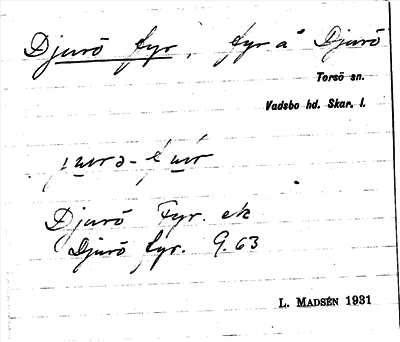 Djurö fyr, fyr å Djurö
Torsö sn.
Vadsbo hd. Skar. l.
jurə-fyr
Djurö Fyr. ek
Djurö fyr. G.63
L. MADSÉN 1931